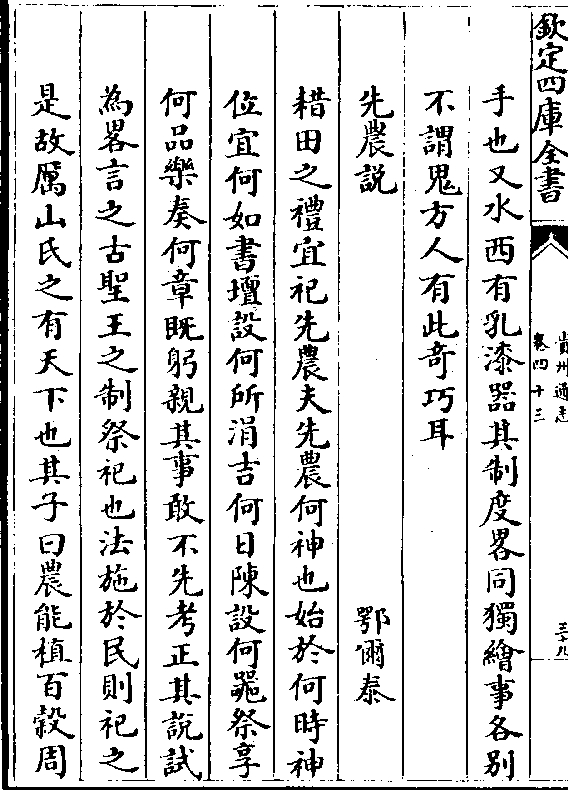 欽定四庫全書
貴州通志
卷四十三
手也又水西有乳漆器其制度畧同獨繪事各別
不謂鬼方人有此奇巧耳
先農説
鄂爾泰
耤田之禮宜祀先農夫先農何神也始於何時神
位宜何如書壇設何所涓吉何日陳設何器祭享
何品樂奏何章旣躬親其事敢不先考正其說試
為畧言之古聖王之制祭祀也法施於民則祀之
是故厲山氏之有天下也其子曰農能植百穀周